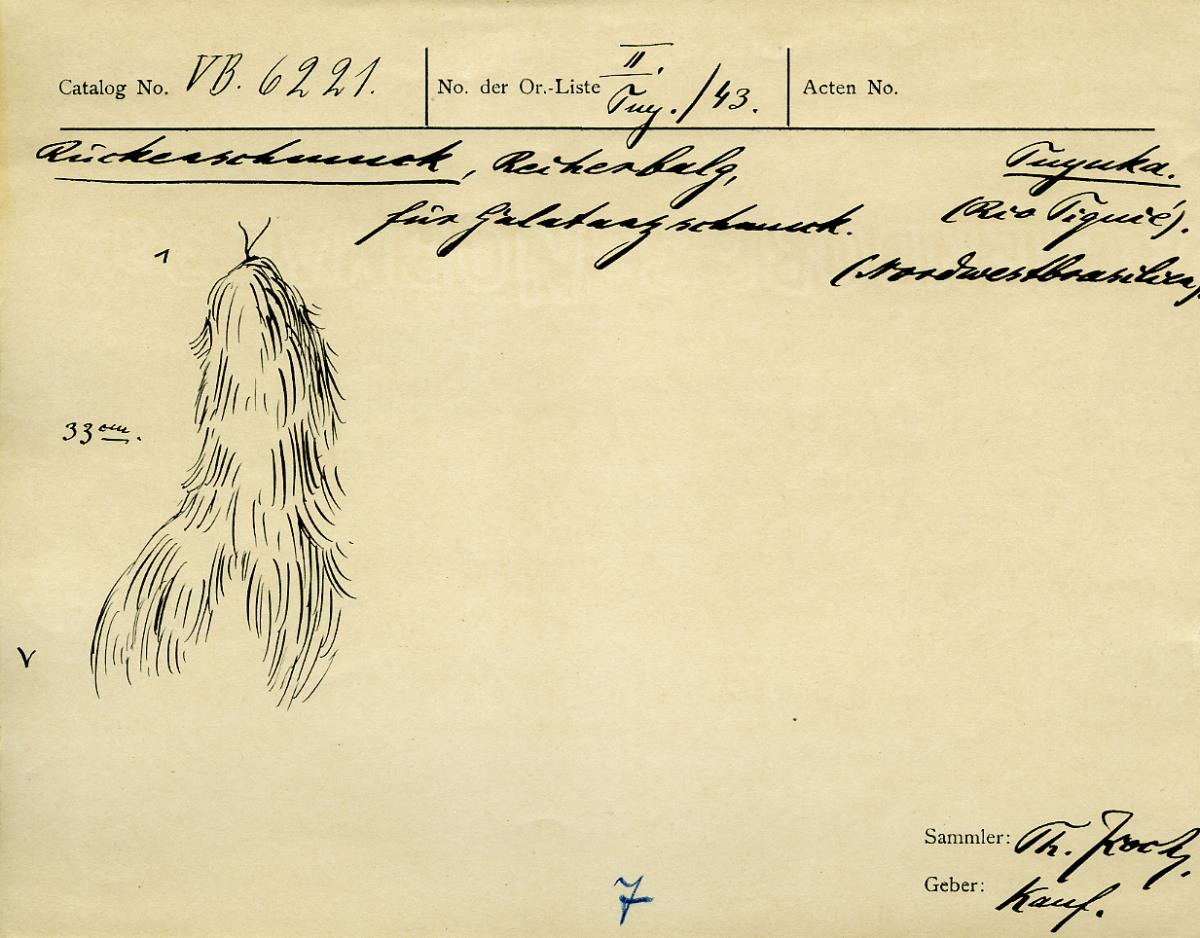 Catalog No. VB. 6221. No. der Or.-Liste II. Tuy./43. Acten No.
Rückenschmuck, Reiherbalg, Tuyuka.
für Galatanzschmuck. (Rio Tiquié).
(Nordwestbrasilien)
1
33 cm.
v
Sammler: Th. Koch.
Geber: Kauf.
7